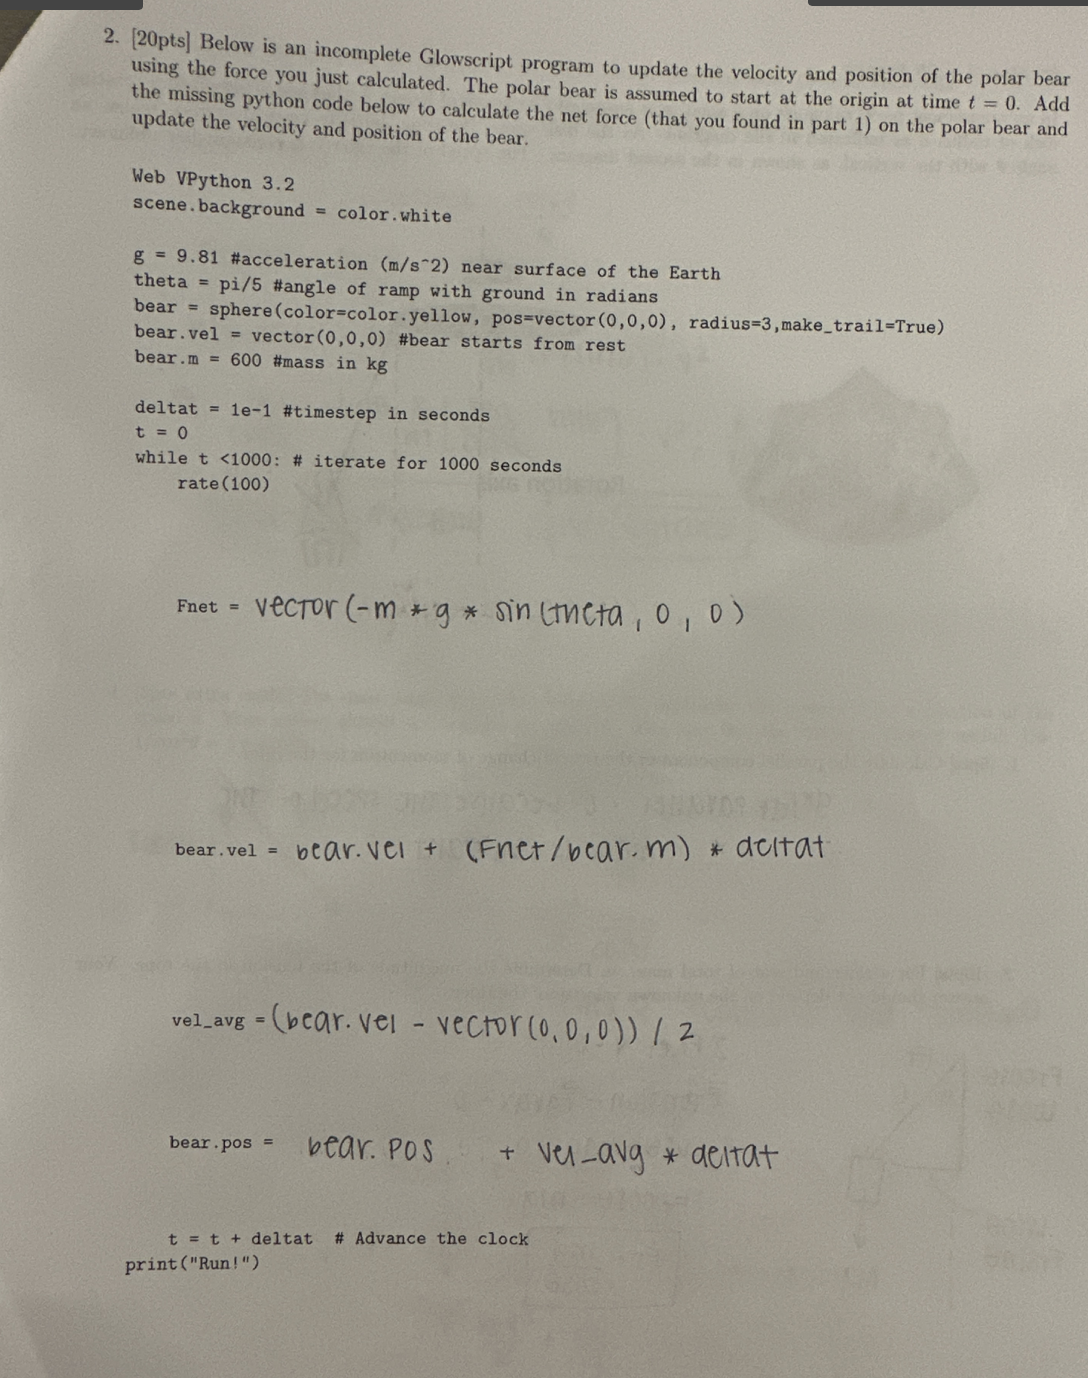 2. [20pts] Below is an incomplete Glowscript program to update the velocity and position of the polar bear
using the force you just calculated. The polar bear is assumed to start at the origin at time t = 0. Add
the missing python code below to calculate the net force (that you found in part 1) on the polar bear and
update the velocity and position of the bear.
Web VPython 3.2
scene.background = color.white
g = 9.81 #acceleration (m/s^2) near surface of the Earth
theta = pi/5 #angle of ramp with ground in radians
bear = sphere(color=color.yellow, pos=vector(0,0,0), radius=3,make_trail=True)
bear.vel = vector(0,0,0) #bear starts from rest
bear.m = 600 #mass in kg
deltat = 1e-1 #timestep in seconds
t = 0
while t <1000: # iterate for 1000 seconds
rate(100)
Fnet = vector(-m * g * sin(theta, 0, 0)
bear.vel = bear.vel + (Fnet/bear.m) * deltat
vel_avg = (bear.vel - vector(0,0,0)) / 2
bear.pos = bear.pos + vel_avg * deltat
t = t + deltat # Advance the clock
print("Run!")